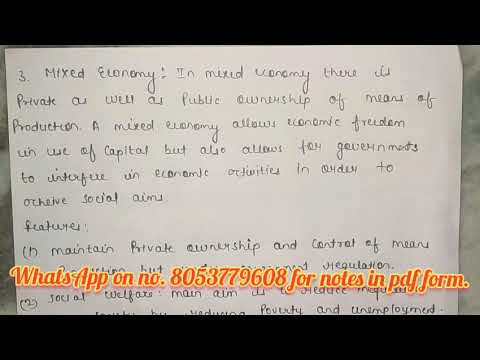 3. Mixed Economy: In mixed economy there is
Private as well as Public ownership of means of
Production. A mixed economy allows economic freedom
in use of Capital but also allows for governments
to interfere in economic activities in order to
acheive social aims.
Features:
(1) maintain Private ownership and control of means
WhatsApp on no. 8053779608 for notes in pdf form.
regulation.
(2) Social welfare: main aim is to reduce
by reducing Poverty and unemployment.